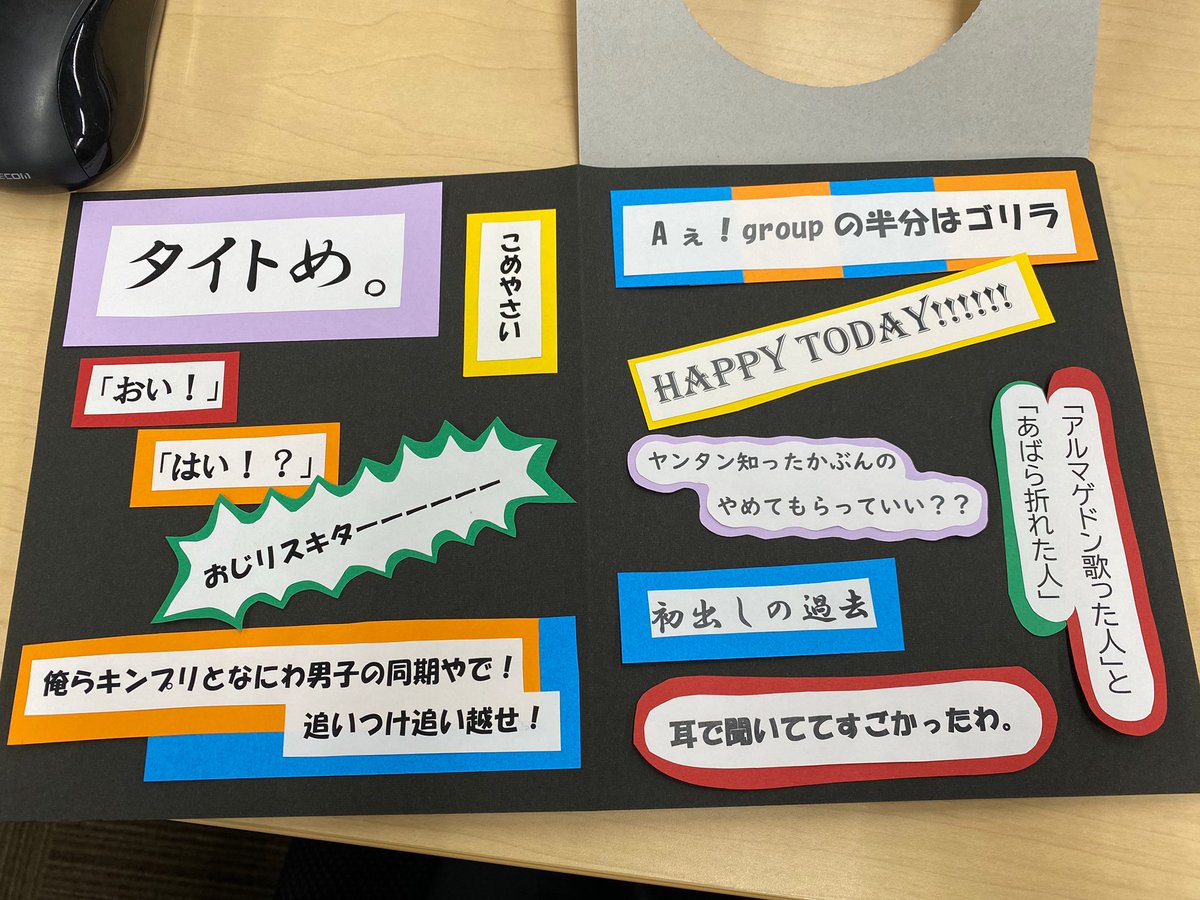 タイトめ。
こめやさい
「おい！」
「はい！？」
おじリスキターーーーーー
俺らキンプリとなにわ男子の同期やで！
追いつけ追い越せ！
Aぇ！groupの半分はゴリラ
HAPPY TODAY!!!!!!
ヤンタン知ったかぶんの
やめてもらっていい？？
「アルマゲドン歌った人」と
「あばら折れた人」
初出しの過去
耳で聞いててすごかったわ。